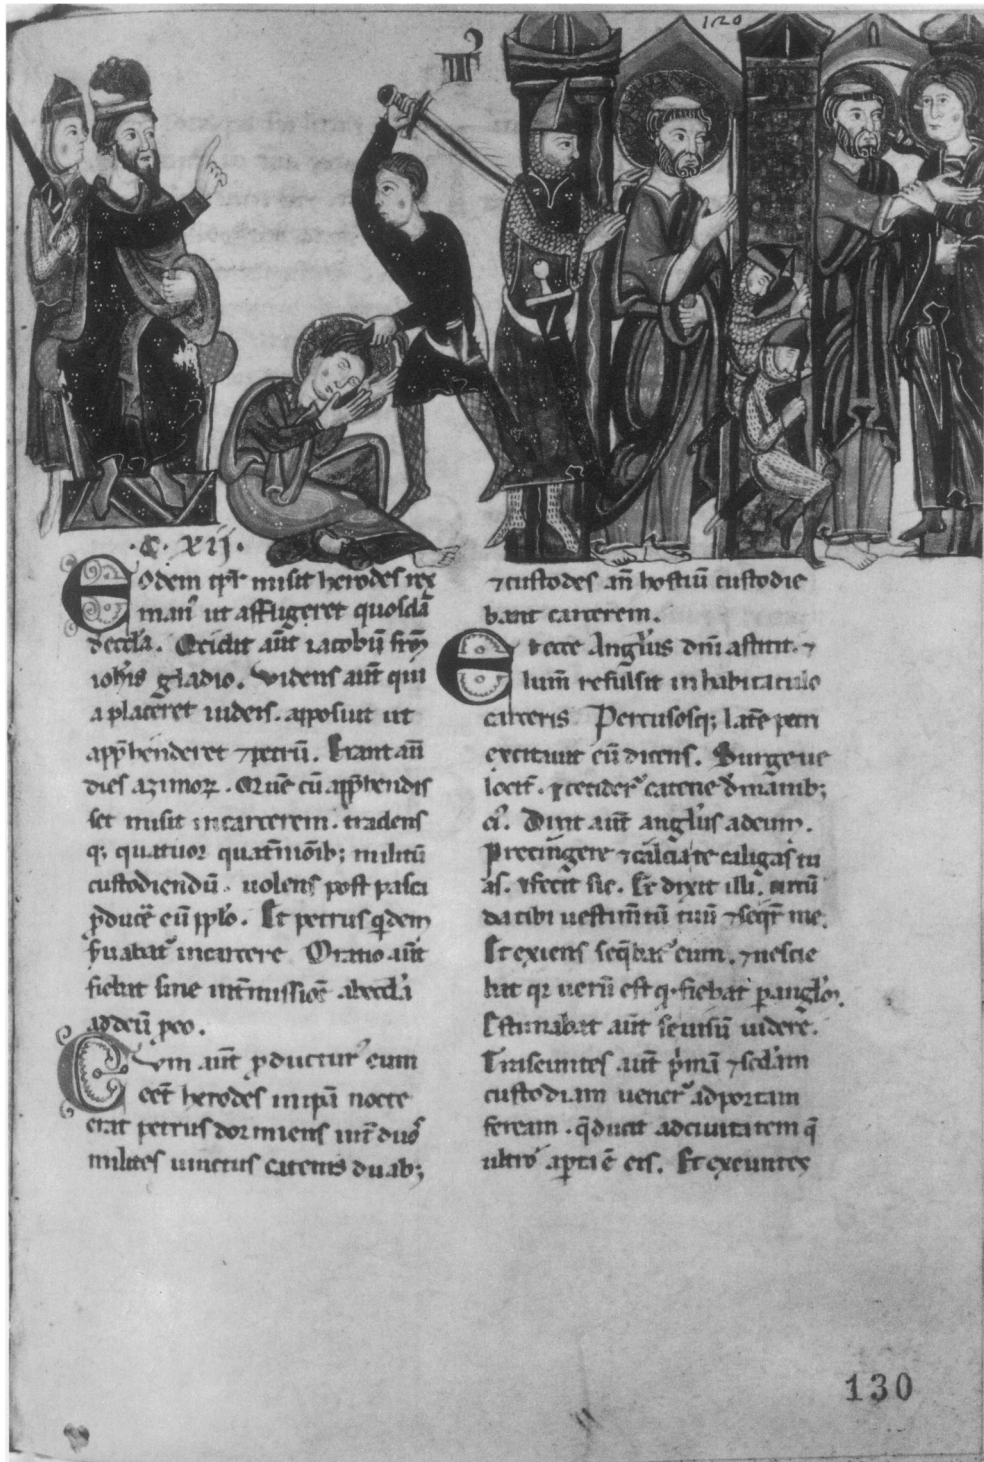 120
·C·XIJ·
Eodem tp̅r misit herodes rex
man᷒ ut affligeret quosdā
deccl̅a. Occidit aūt iacobū fr̅m
ioh̅is gladio. Videns aūt qui
a placeret iudeis. apposuit ut
app̅henderet ⁊petrū. Erant aū
dies azimoꝝ. Quē cū app̅hendis
set misit incarcerem. tradens
q; quatuor quat̅nioib; militū
custodiendū. uolens post pasca
p̅ducē eū pp̅lo. Et petrus qͥdem
s̅uabat᷒ incarcere Oratio aūt
fiebat sine int̅missiōe abeccl̅a
addeū peo.
Cum aūt p̅ducturᷣ eum
eēt herodes inip̅a nocte
erat petrus dormiens int̅ duos
milites uinctus catenis duab;
⁊custodes an̅ hostiū custodie
bant carcerem.
Et ecce Angl̅us dn̅i astitit. ⁊
lum̅ refulsit in habitaculo
carceris Percussosq; lat̅e petri
excitauit eū dicens. Surge ue
locit̅. ⁊ceciderᷣ catene dmanib;
ei᷒. Dixit aūt angl̅us adeum.
Precingere ⁊calciate caligas tu
as. ⁊fecit sic. Et dixit illi. circū
da tibi uestim̅tū tuū ⁊seqr̅ me.
Et exiens seq̅batᷣ eum. ⁊nescie
bat qr uerū est q·fiebat p̱angl̅o.
Estimabat aūt se uisū uidere.
Transeuntes aūt pͥmā ⁊scd̅am
custodiam uenerᷣ adportam
feream. q̅ducit adciuitatem q̅
ultro apta ē eis. Et exeuntes
130